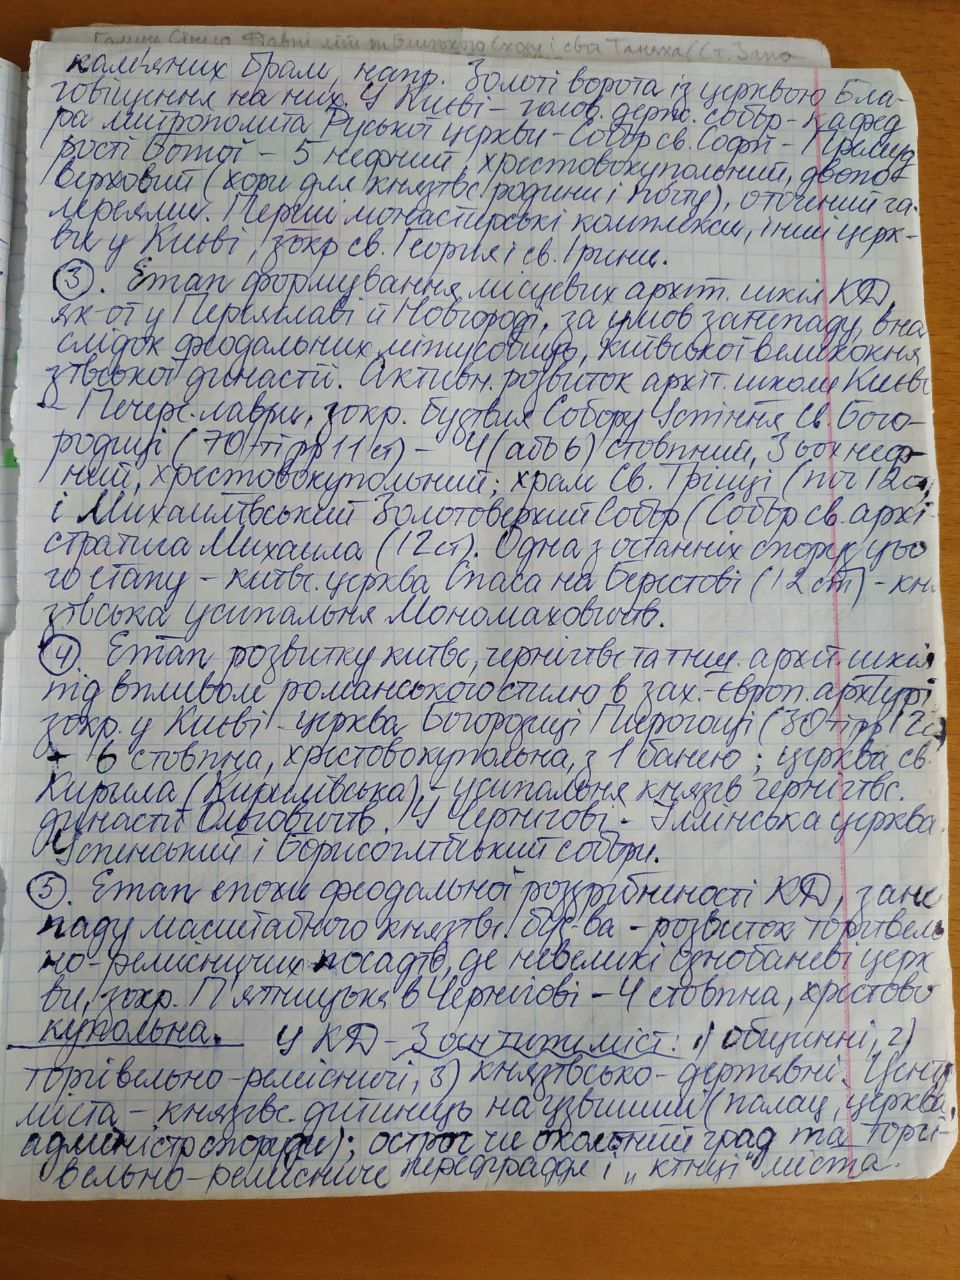 Галина Сініло Давні літ Близького Сходу і світ Танаха (Ст. Запо
кам'яних брам, напр. Золоті ворота із церквою Бла-
говіщення на них. У Києві - голов. держ. собор - кафед
ра митрополита Руської церкви - Собор св. Софії - Премуд
рості Божої - 5 нефний, хрестовокупольний, двопо-
верховий (хори для князівс. родини і почту), оточений га-
лереями. Перші монастирські комплекси, інші церк-
ви у Києві, зокр св. Георгія і св. Ірини.
3. Етап формування місцевих архіт. шкіл КД,
як-от у Переяславі й Новгороді, за умов занепаду, вна
слідок феодальних міжусобиць, київської великокня
зівської династії. Активн. розвиток архіт. школи Києво
- Печерс. лаври, зокр. будівля Собору Успіння Св. Бого-
родиці (70-ті рр 11 ст) - 4 (або 6) стовпний, 3 ьох неф-
ний, хрестовокупольний; храм Св. Трійці (поч 12 ст)
і Михайлівський Золотоверхий Собор (Собор св. архі
стратига Михаїла (12 ст). Одна з останніх споруд цьо
го етапу - київс. церква Спаса на Берестові (12 ст) - кня
зівська усипальня Мономаховичів.
4. Етап розвитку київс, чернігівс та інш. архіт. шкіл
під впливом романського стилю в зах.-європ. архтурі
зокр. у Києві - церква Богородиці Пирогощі (30-ті рр 12 ст)
- 6 стовпна, хрестовокупольна, з 1 банею; церква св.
Кирила (Кирилівська) - усипальня князів чернігівс.
династії Ольговичів. У Чернігові - Іллінська церква,
Успенський і Борисоглібський собори.
5. Етап епохи феодальної роздрібненості КД, зане
паду масштабного князівс. буд-ва - розвиток торгівель
но-ремісничих посадів, де невеликі однобаневі церк
ви, зокр. П'ятницька в Чернігові - 4 стовпна, хрестово
купольна. У КД - 3 типи міст: 1) общинні, 2)
торгівельно-ремісничі, 3) князівсько-державні. Центр
міста - князівс. дитинець на узвишші (палац, церква,
адміністр споруди); острог чи окольний град та торгі-
вельно-ремісниче передграддя і "кінці" міста.